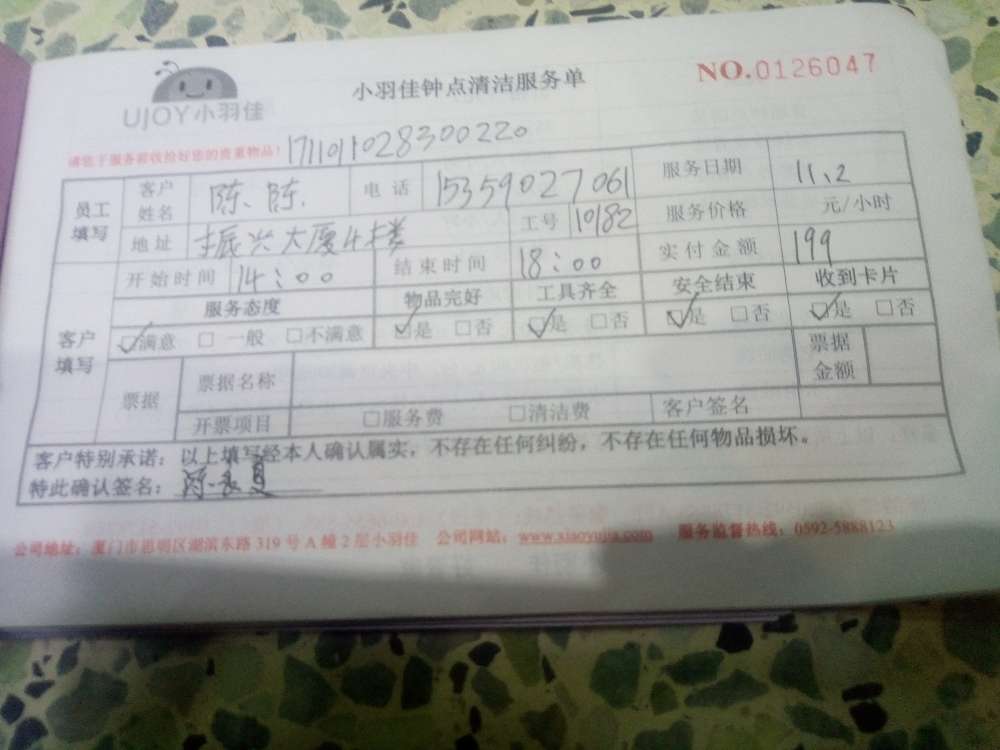 UJOY小羽佳
小羽佳钟点清洁服务单
NO.0126047
请您于服务前收拾好您的贵重物品！
1711011028300220
员工填写 客户姓名 陈、陈. 电话 15359027061 服务日期 11、2
地址 振兴大厦4楼 工号 10182 服务价格 元/小时
客户填写 开始时间 14：00 结束时间 18：00 实付金额 199
服务态度 物品完好 工具齐全 安全结束 收到卡片
☑满意 □一般 □不满意 ☑是 □否 ☑是 □否 ☑是 □否 ☑是 □否
票据 票据名称 票据金额
开票项目 □服务费 □清洁费 客户签名
客户特别承诺：以上填写经本人确认属实，不存在任何纠纷，不存在任何物品损坏。
特此确认签名：
公司地址：厦门市思明区湖滨东路319号A幢2层小羽佳 公司网站：www.xiaoyujia.com 服务监督热线：0592-5888123